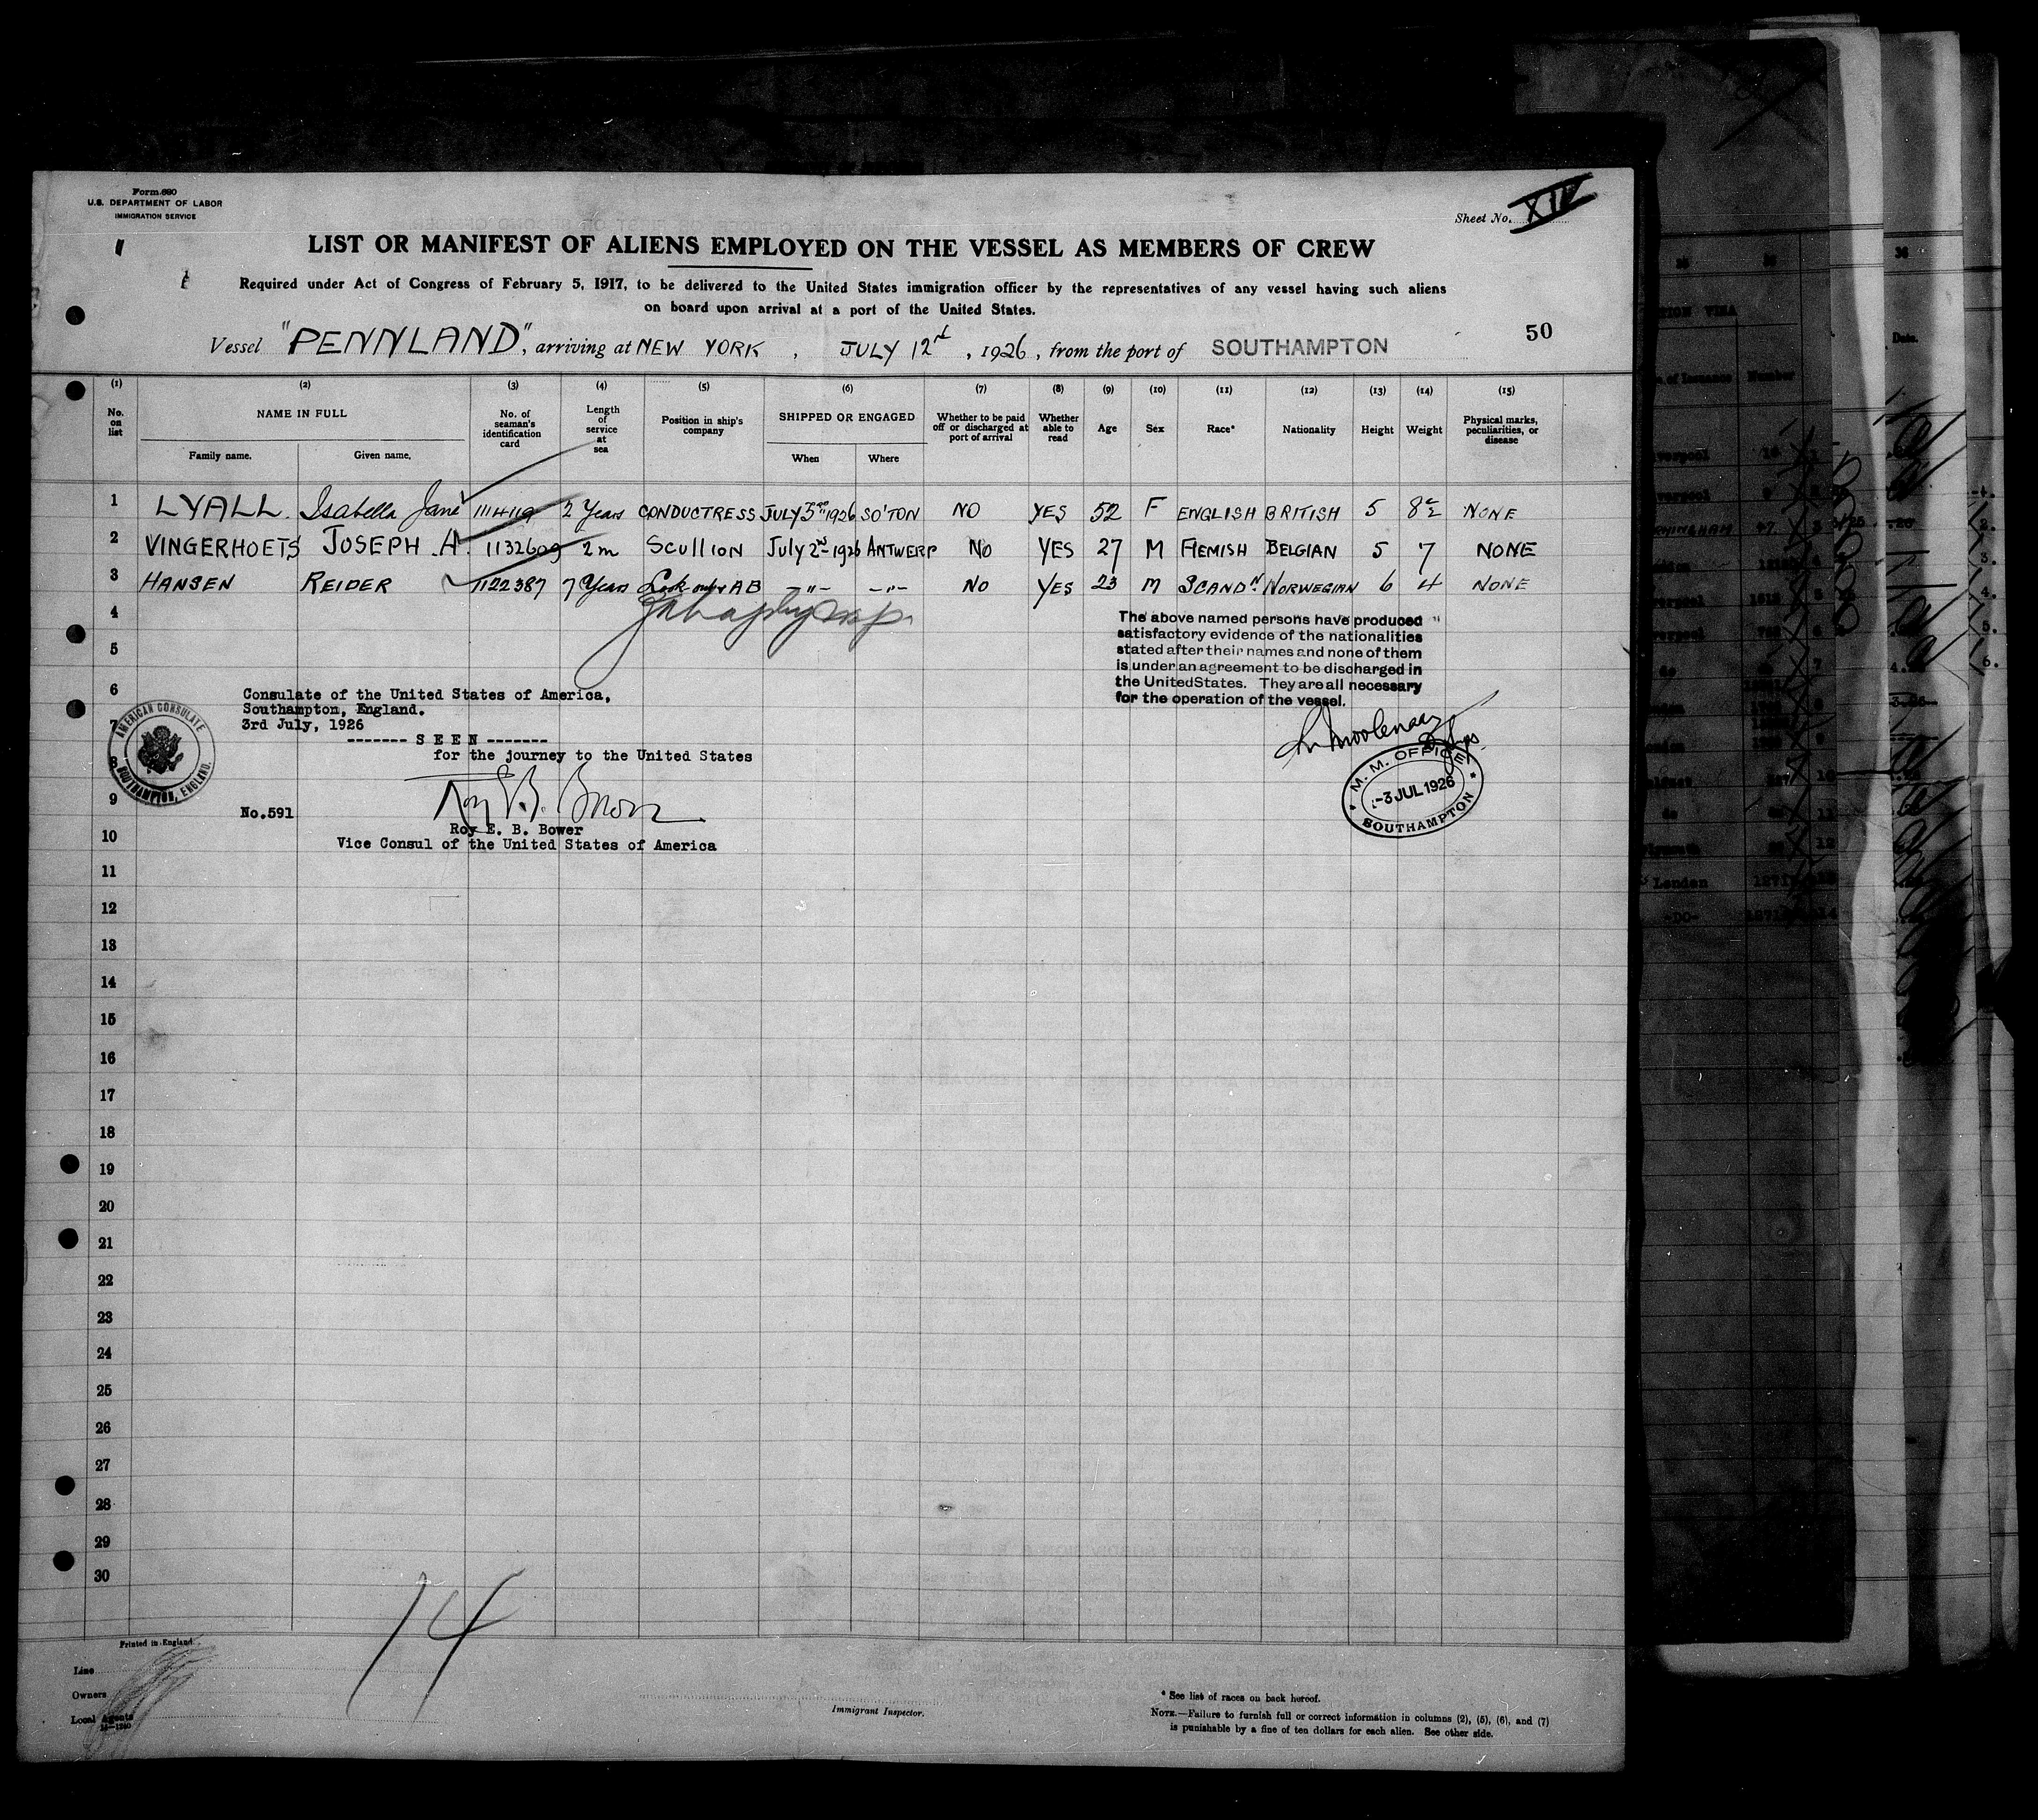 Form 680
U.S. DEPARTMENT OF LABOR
IMMIGRATION SERVICE
Sheet No.
LIST OR MANIFEST OF ALIENS EMPLOYED ON THE VESSEL AS MEMBERS OF CREW
Required under Act of Congress of February 5, 1917, to be delivered to the United States immigration officer by the representatives of any vessel having such aliens
on board upon arrival at a port of the United States.
50
Vessel "PENNLAND", arriving at NEW YORK, JULY 12nd, 1926, from the port of SOUTHAMPTON
(1) (2) (3) (4) (5) (6) (7) (8) (9) (10) (11) (12) (13) (14) (15)
No. on list NAME IN FULL No. of seaman's identification card Length of service at sea Position in ship's company SHIPPED OR ENGAGED Whether to be paid off or discharged at port of arrival Whether able to read Age Sex Race* Nationality Height Weight Physical marks, peculiarities, or disease
Family name. Given name. When Where
1 LYALL. Isabella Jane 2 Years CONDUCTRESS JULY 3rd 1926 SO'TON NO YES 52 F ENGLISH BRITISH 5 8½ NONE
2 VINGERHOETS JOSEPH .A. 1132609 2 m Scullion July 2nd 1926 ANTWERP No YES 27 M FlEMISH BELGIAN 5 7 NONE
3 HANSEN REIDER 1122387 7 Years Look out & AB -"- -"- No YES 23 M SCANDN. NORWEGIAN 6 4 NONE
4
The above named persons have produced
satisfactory evidence of the nationalities
5
stated after their names and none of them
is under an agreement to be discharged in
the United States. They are all necessary
for the operation of the vessel.
6
Consulate of the United States of America,
Southampton, England.
7
3rd July, 1926
------- S E E N -------
for the journey to the United States
AMERICAN CONSULATE
SOUTHAMPTON, ENGLAND.
8
M. M. OFFICE
-3 JUL 1926
SOUTHAMPTON
9
No.591
Roy E. B. Bower
10
Vice Consul of the United States of America
11
12
13
14
15
16
17
18
19
20
21
22
23
24
25
26
27
28
29
30
14
Printed in England.
Line
Owners
Local Agents
14-1240
Immigrant Inspector.
* See list of races on back hereof.
NOTE.—Failure to furnish full or correct information in columns (2), (5), (6), and (7)
is punishable by a fine of ten dollars for each alien. See other side.